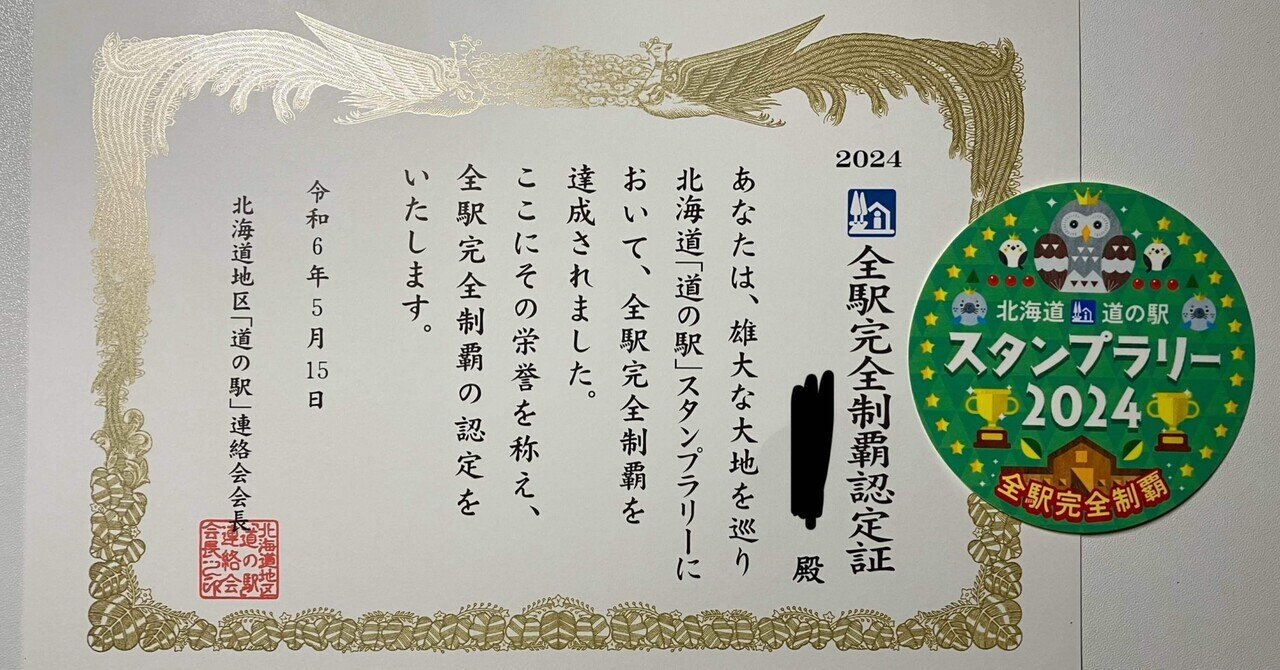 2024
全駅完全制覇認定証
殿
あなたは、雄大な大地を巡り
北海道「道の駅」スタンプラリーに
おいて、全駅完全制覇を
達成されました。
ここにその栄誉を称え、
全駅完全制覇の認定を
いたします。
令和6年5月15日
北海道地区「道の駅」連絡会会長
北海道地区
「道の駅」
連絡会
会長之印
北海道 道の駅
スタンプラリー
2024
全駅完全制覇